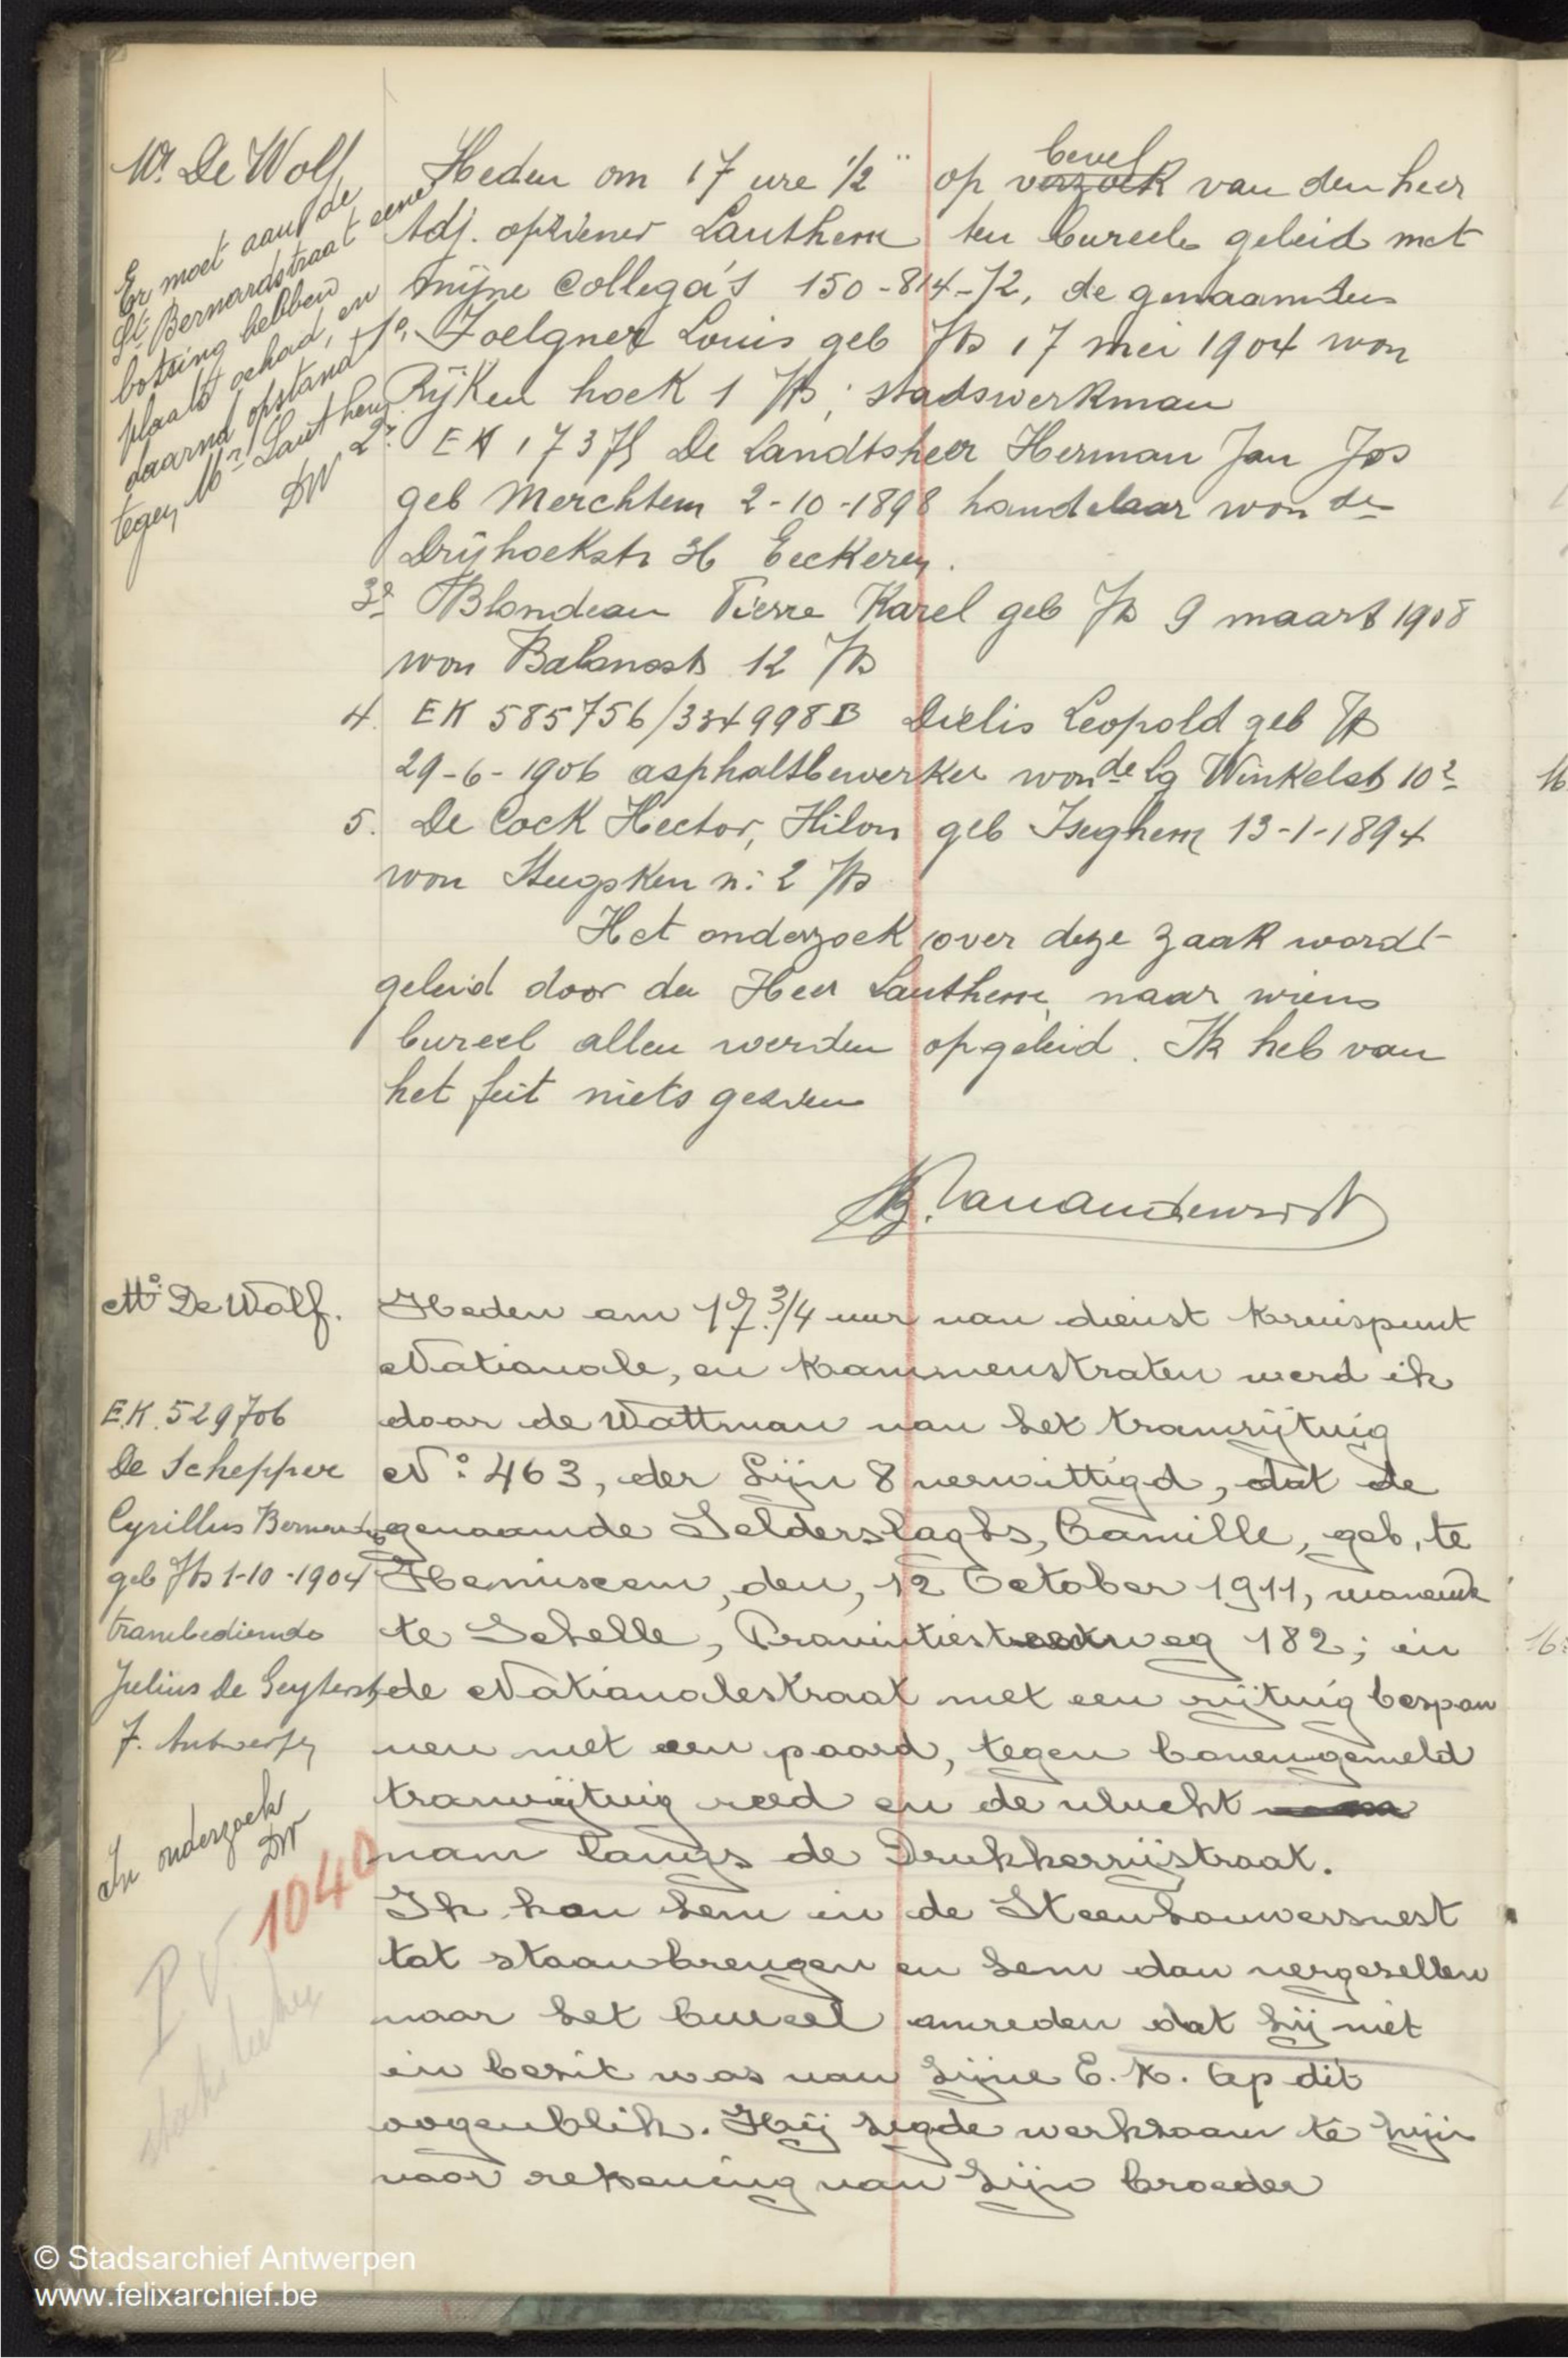 Mr. De Wolf
Er moet aan de
St. Bernardstraat eene
botsing hebben
plaats gehad, en
daarna opstand
tegen Mr. Lauthem
DW
Heden om 17 ure 1/2 op bevel verzoek van den heer
Adj. opziener Lauthem ten bureele geleid met
mijne Collega's 150-814-72, de genaamden
1e. Zoelgner Louis geb A 17 mei 1904 won
Rijken hoek 1 A; stadswerkman
2e. EK 17375 De Landtsheer Herman Jan Jos
geb Merchtem 2-10-1898 handelaar won de
Drijhoekstr 36 Eeckeren.
3e Blondeau Pierre Karel geb A 9 maart 1908
won Balansstr 12 A
4. EK 585756/334998B Dielis Leopold geb A
29-6-1906 asphaltbewerker won de Lg Winkelstr 10²
5. De Cock Hector, Hilon geb Iseghem 13-1-1894
won Steegsken n: 2 A
Het onderzoek over deze zaak wordt
geleid door de Heer Lauthem, naar wiens
bureel allen werden opgeleid. Ik heb van
het feit niets gezien
Mr. De Wolf.
E.K. 529706
De Schepper
Cyrillus Bernardus
geb A 1-10-1904
trambediende
Julius De Geyterstr
7. Antwerpen
In onderzoek
DW
P.V. 1040
Heden om 17.3/4 uur van dienst kruispunt
Nationale, en Kammenstraten werd ik
door de Wattman van het tramrijtuig
N: 463, der Lijn 8 verwittigd, dat de
genaamde Selderslaghs, Camille, geb, te
Hemiscem, den, 12 October 1911, wonende
te Schelle, Provintiesteenweg 182; in
de Nationalestraat met een rijtuig bespan
nen met een paard, tegen bovengemeld
tramrijtuig reed en de vlucht
nam langs de Drukkerrijstraat.
Ik kon hem in de Steenhouwersvest
tot staanbrengen en hem dan vergezellen
naar het bureel omreden dat hij niet
in bezit was van zijne E.K. op dit
oogenblik. Hij zegde werkzaam te zijn
voor rekening van zijn broeder
© Stadsarchief Antwerpen
www.felixarchief.be